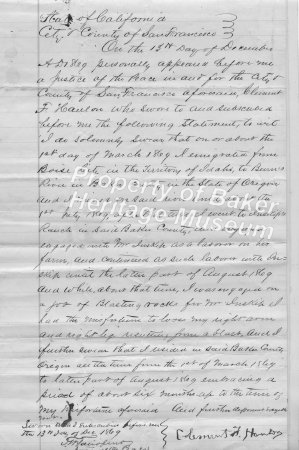 State of California
City & County of San Francisco
On the 13th Day of December
A D 1869 personally appeared before me
a Justice of the Peace in and for the City &
County of San Francisco aforesaid, Clement
F. who swore to and subscribed
before me the following Statement, to wit
I do Solemnly Swear that on or about the
1st day of March 1869 I emigrated from
Boise City in the Territory of Idaho, to Burnt
River in in the State of Oregon
and I in said
1st July 1869 I went to
Ranch in said Baker County
engaged with Mr Inskip as a laborer on his
farm, and continued as such laborer with
until the later part of August 1869
and while, about that time, I was engaged on
a job of Blasting rocks for Mr Inskip I
had the misfortune to lose my right arm
and right leg resulting from a blast. And I
further swear that I resided in Said Baker County
Oregon from the 1st of March 1869
to later part of August 1869 embracing a
period of about six months up to the time of
my Misfortune aforesaid And further deponent
Sworn and Subscribed before me
the 13th Day of Dec 1869
Clement
Property of Baker
Heritage Museum